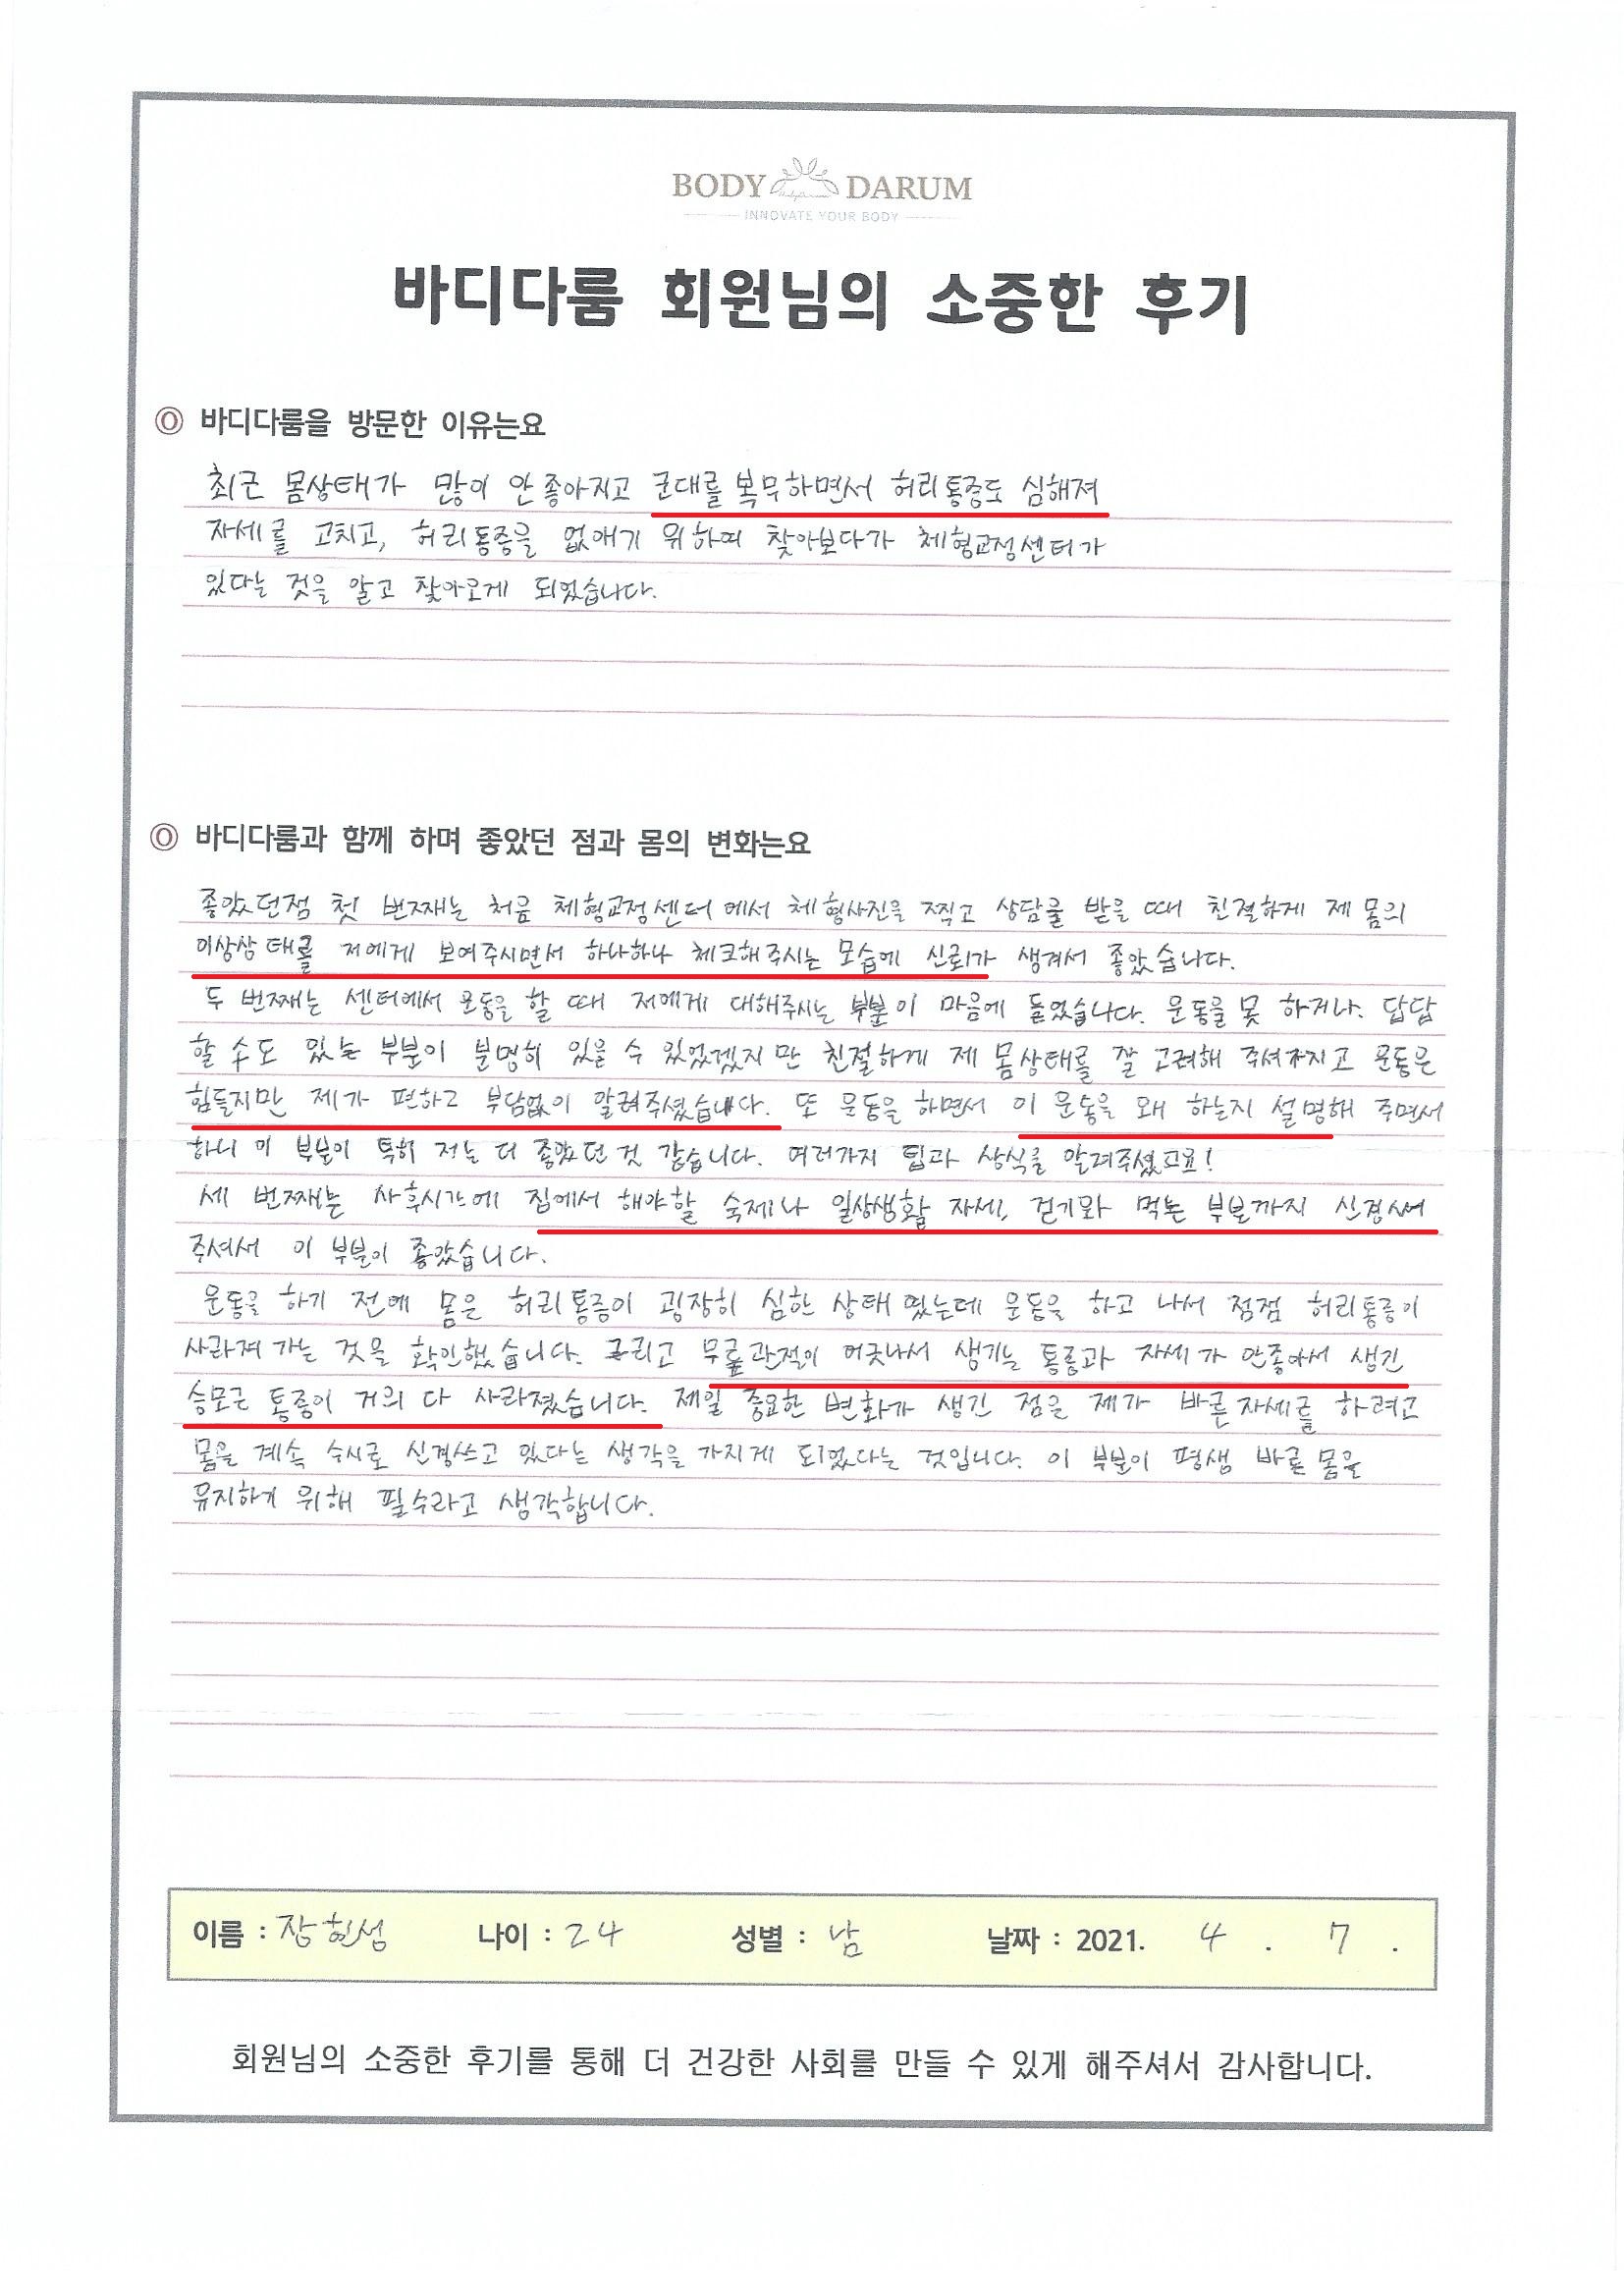 BODY DARUM
INNOVATE YOUR BODY
바디다룸 회원님의 소중한 후기
바디다룸을 방문한 이유는요
최근 몸상태가 많이 안 좋아지고 군대를 복무하면서 허리통증도 심해져
자세를 고치고, 허리통증을 없애기 위하여 찾아보다가 체형교정센터가
있다는 것을 알고 찾아오게 되었습니다.
바디다룸과 함께 하며 좋았던 점과 몸의 변화는요
좋았던점 첫 번째는 처음 체형교정센터에서 체형사진을 찍고 상담을 받을 때 친절하게 제 몸의
이상상태를 저에게 보여주시면서 하나하나 체크해주시는 모습에 신뢰가 생겨서 좋았습니다.
두 번째는 센터에서 운동을 할 때 저에게 대해주시는 부분이 마음에 들었습니다. 운동을 못 하거나. 답답
할 수도 있는 부분이 분명히 있을 수 있었겠지만 친절하게 제 몸상태를 잘 고려해 주셔가지고 운동은
힘들지만 제가 편하고 부담없이 알려주셨습니다. 또 운동을 하면서 이 운동을 왜 하는지 설명해 주면서
하니 이 부분이 특히 저는 더 좋았던 것 같습니다. 여러가지 팁과 상식을 알려주셨고요!
세 번째는 사후시간에 집에서 해야할 숙제나 일상생활 자세, 걷기와 먹는 부분까지 신경써
주셔서 이 부분이 좋았습니다.
운동을 하기 전에 몸은 허리통증이 굉장히 심한 상태였는데 운동을 하고 나서 점점 허리통증이
사라져 가는 것을 확인했습니다. 그리고 무릎관절이 어긋나서 생기는 통증과 자세가 안좋아서 생긴
승모근 통증이 거의 다 사라졌습니다. 제일 중요한 변화가 생긴 점은 제가 바른자세를 하려고
몸을 계속 수시로 신경쓰고 있다는 생각을 가지게 되었다는 것입니다. 이 부분이 평생 바른 몸을
유지하기 위해 필수라고 생각합니다.
이름 : 장현성 나이 : 24 성별 : 남 날짜 : 2021. 4 . 7 .
회원님의 소중한 후기를 통해 더 건강한 사회를 만들 수 있게 해주셔서 감사합니다.